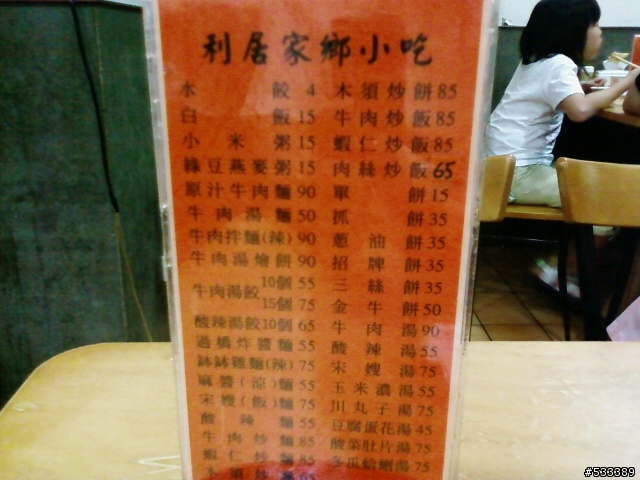 利居家鄉小吃
水餃 4
白飯 15
小米粥 15
綠豆燕麥粥 15
原汁牛肉麵 90
牛肉湯麵 50
牛肉拌麵(辣) 90
牛肉湯燴餅 90
牛肉湯餃 10個 55
15個 75
酸辣湯餃10個 65
過橋炸醬麵 55
缽缽雞麵(辣) 75
麻醬(涼)麵 55
宋嫂(飯)麵 75
酸辣麵 55
牛肉炒麵 85
蝦仁炒麵 85
木須炒餅 85
牛肉炒飯 85
蝦仁炒飯 85
肉絲炒飯 65
單餅 15
抓餅 35
蔥油餅 35
招牌餅 35
三絲餅 35
金牛餅 50
牛肉湯 90
酸辣湯 55
宋嫂湯 75
玉米濃湯 55
川丸子湯 75
豆腐蛋花湯 45
酸菜肚片湯 75
冬瓜蛤蜊湯 75
#533389